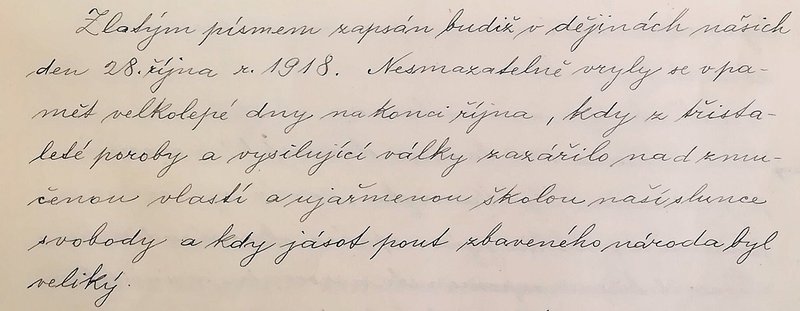 Zlatým písmem zapsán budiž v dějinách našich
den 28. října r. 1918. Nesmazatelně vryly se v pa-
mět velkolepé dny na konci října, kdy z třista-
leté poroby a vysilující války zazářilo nad zmu-
čenou vlastí a ujařmenou školou naší slunce
svobody a kdy jásot pout zbaveného národa byl
veliký.